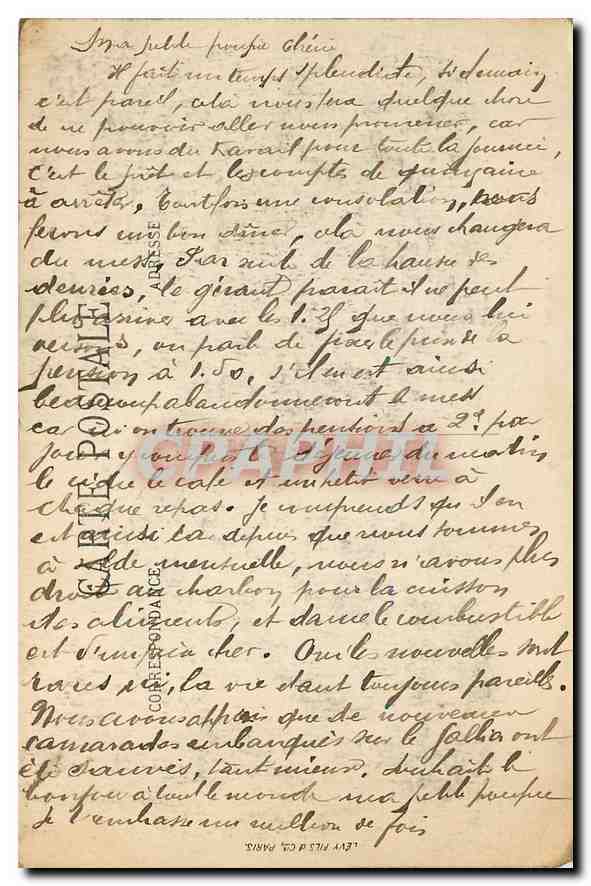 Ma petite poupée chérie
Il fait un temps splendide, si demain
c'est pareil, cela nous fera quelque chose
de ne pouvoir aller nous promener, car
nous avons du travail pour toute la journée,
c'est le prêt et les comptes de quinzaine
à arrêter, toutefois une consolation, nous
ferons un bon dîner, cela nous changera
du mess, Par suite de la hausse des
denrées, le gérant parait il ne peut
plus arriver avec les 1.25 que nous lui
versons, on parle de fixer le prix de la
pension à 1.50, s'il en est ainsi
beaucoup abandonneront le mess
car ici on trouve des pensions à 2f par
jour, y compris le déjeuner du matin
le cidre le café et un petit verre à
chaque repas. Je comprends qu'il en
est ainsi car depuis que nous sommes
à solde mensuelle, nous n'avons plus
droit au charbon pour la cuisson
des aliments, et dame le combustible
est d'un prix cher. Oui les nouvelles sont
rares ici, la vie étant toujours pareille.
Nous avons appris que de nouveaux
camarades embarqués sur le Gallia ont
été sauvés, tant mieux. Souhaite le
bonjour à tout le monde ma petite poupée
Je t'embrasse un million de fois
CARTE POSTALE
CORRESPONDANCE
ADRESSE
LÉVY FILS & Co, PARIS.
CPAPHIL